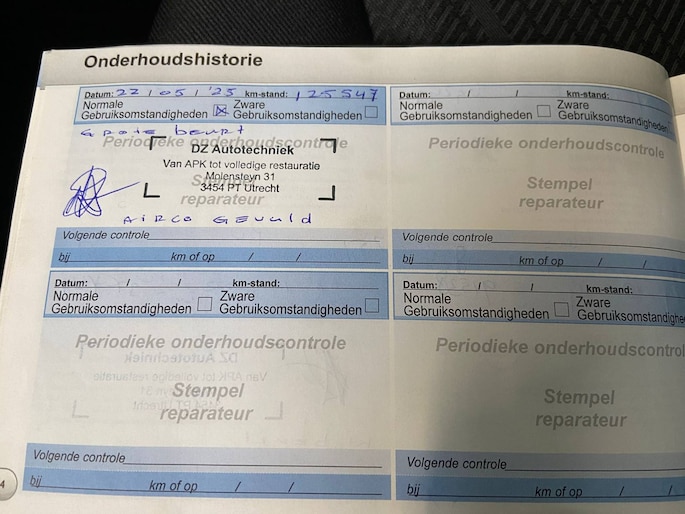 Onderhoudshistorie
Datum: 22 / 05 / '23 km-stand: 125547
Normale Gebruiksomstandigheden ☒ Zware Gebruiksomstandigheden ☐
Grote beurt
Periodieke onderhoudscontrole
DZ Autotechniek
Van APK tot volledige restauratie
Molensteyn 31
3454 PT Utrecht
Stempel
reparateur
Airco gevuld
Volgende controle
bij km of op / /
Datum: / / km-stand:
Normale Gebruiksomstandigheden ☐ Zware Gebruiksomstandigheden
Periodieke onderhoudscontrole
Stempel
reparateur
Volgende controle
bij km of op / /
Datum: / / km-stand:
Normale Gebruiksomstandigheden ☐ Zware Gebruiksomstandigheden ☐
Periodieke onderhoudscontrole
Stempel
reparateur
Volgende controle
bij km of op / /
Datum: / / km-stand:
Normale Gebruiksomstandigheden ☐ Zware Gebruiksomstandighede
Periodieke onderhoudscontrol
Stempel
reparateur
Volgende controle
bij km of op / /
4